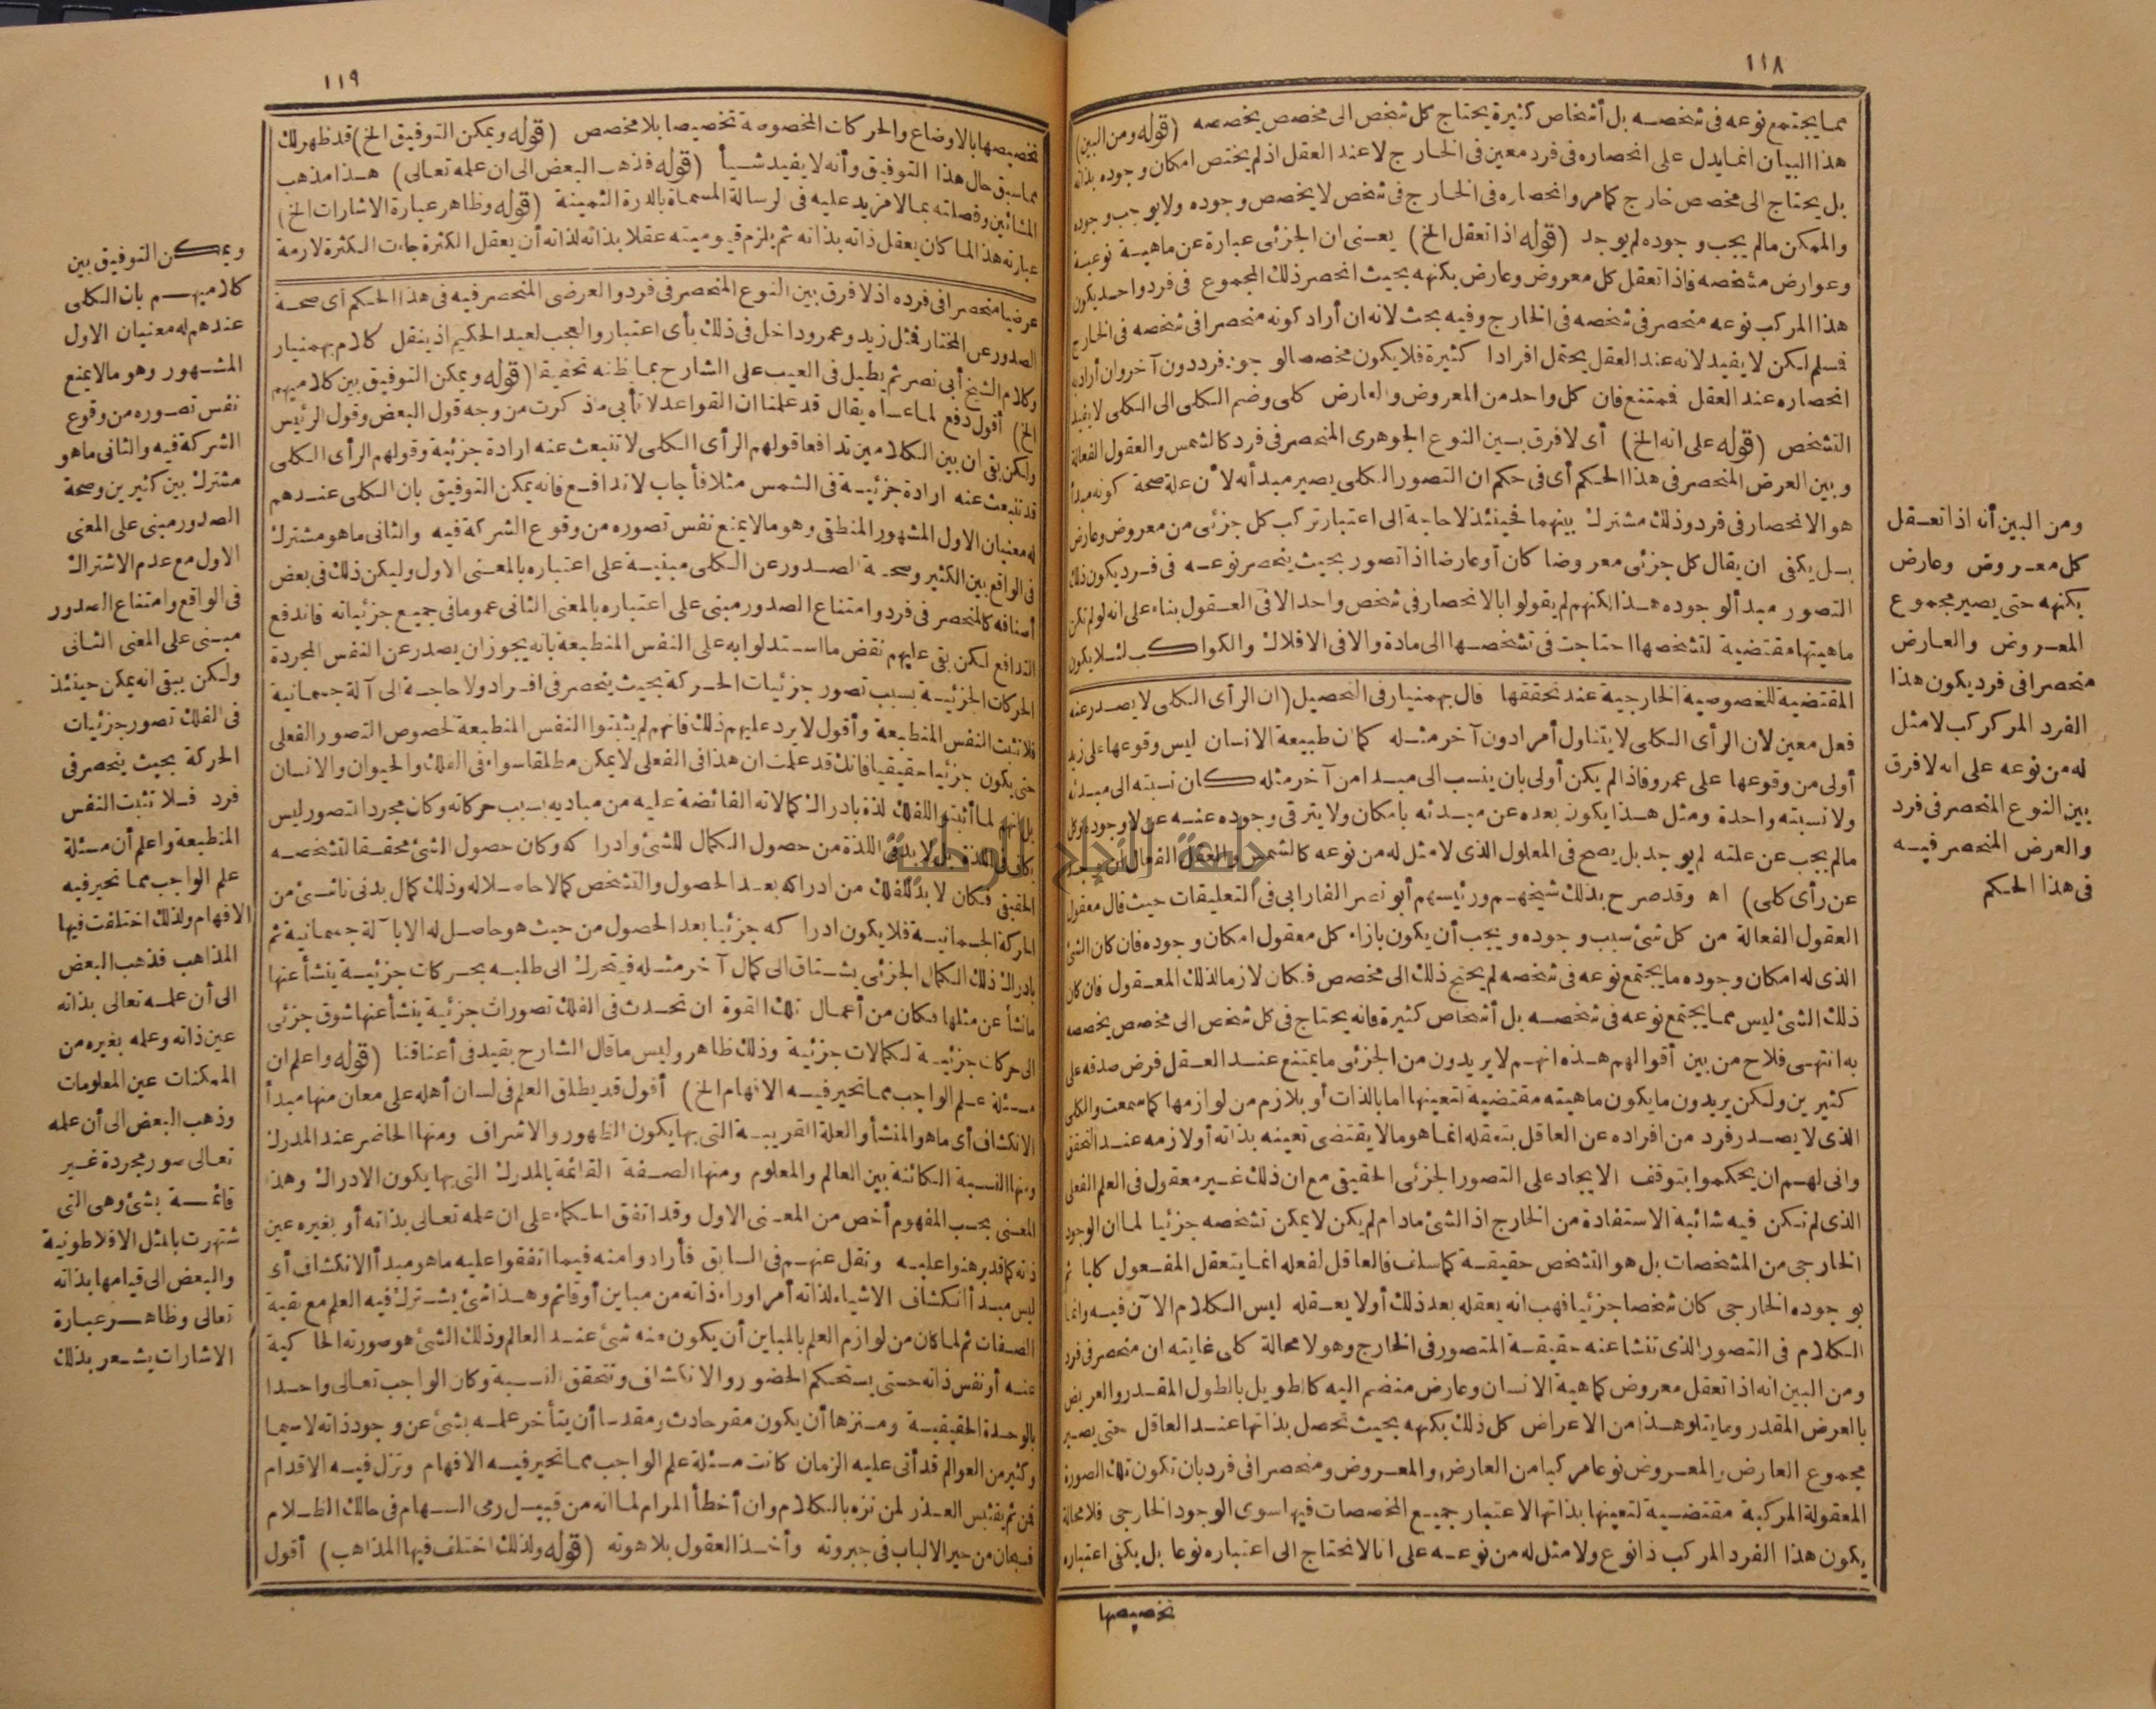 ١١٨
مما يجتمع نوعه فى شخصه بل أشخاص كثيرة يحتاج كل شخص الى مخصص يخصصه (قوله ومن البين)
هذا البيان انما يدل على انحصاره فى فرد معين فى الخارج لا عند العقل اذ لم يختص امكان وجوده بذاته
بل يحتاج الى مخصص خارج كما مر وانحصاره فى الخارج فى شخص لا يخصص وجوده ولا يوجب وجوده
والممكن مالم يجب وجوده لم يوجد (قوله اذا تعقل الخ) يعنى ان الجزئى عبارة عن ماهية نوعية
وعوارض مشخصه فاذا تعقل كل معروض وعارض بكنهه بحيث انحصر ذلك المجموع فى فرد واحد يكون
هذا المركب نوعه منحصر فى شخصه فى الخارج وفيه بحث لانه ان أراد كونه منحصرا فى شخصه فى الخارج
فسلم لكن لا يفيد لانه عند العقل يحتمل افرادا كثيرة فلا يكون مخصصا لوجود فرد دون آخر وان أراد
انحصاره عند العقل فممتنع فان كل واحد من المعروض والعارض كلى وضم الكلى الى الكلى لا يفيد
التشخص (قوله على انه الخ) أى لا فرق بين النوع الجوهرى المنحصر فى فرد كالشمس والعقول الفعالة
وبين العرض المنحصر فى هذا الحكم أى فى حكم ان التصور الكلى يصير مبدأ له لأن علة صحة كونه مبدأ
هو الانحصار فى فرد وذلك مشترك بينهما فحينئذ لا حاجة الى اعتبار تركب كل جزئى من معروض وعارض
بل يكفى ان يقال كل جزئى معروضا كان أو عارضا اذا تصور بحيث ينحصر نوعه فى فرد يكون ذلك
التصور مبدأ لوجوده هذا لكنهم لم يقولوا بالانحصار فى شخص واحد الا فى العقول بناء على انه لو لم تكن
ماهيتها مقتضية لتشخصها احتاجت فى تشخصها الى مادة والا فى الافلاك والكواكب لئلا يكون
المقتضية للخصوصية الخارجية عند تحققها قال بهمنيار فى التحصيل (ان الرأى الكلى لا يصدر عنه
فعل معين لان الرأى الكلى لا يتناول أمرا دون آخر مثله كما ان طبيعة الانسان ليس وقوعها على زيد
أولى من وقوعها على عمرو فاذا لم يكن أولى بان ينسب الى مبدا من آخر مثله كان نسبته الى مبدئه
ولا نسبته واحدة ومثل هذا يكون بعده عن مبدئه بامكان ولا يترقى وجوده عنه عن لا وجوده وكل
مالم يجب عن علته لم يوجد بل يصح فى المعلول الذى لا مثل له من نوعه كالشمس والعقل الفعال ان يوجد
عن رأى كلى) اه وقد صرح بذلك شيخهم ورئيسهم أبو نصر الفارابى فى التعليقات حيث قال معقول
العقول الفعالة من كل شئ سبب وجوده ويجب أن يكون بازاء كل معقول امكان وجوده فان كان الشئ
الذى له امكان وجوده ما يجتمع نوعه فى شخصه لم يحتج ذلك الى مخصص فكان لازما لذلك المعقول فان كان
ذلك الشئ ليس مما يجتمع نوعه فى شخصه بل أشخاص كثيرة فانه يحتاج فى كل شخص الى مخصص يخصصه
به انتهى فلاح من بين أقوالهم هذه انهم لا يريدون من الجزئى ما يمتنع عند العقل فرض صدقه على
كثيرين ولكن يريدون ما يكون ماهيته مقتضية لتعينها اما بالذات أو بلازم من لوازمها كما سمعت والكلى
الذى لا يصدر فرد من افراده عن العاقل بتعقله انما هو ما لا يقتضى تعينه بذاته أو لازمه عند التحقق
وانى لهم ان يحكموا بتوقف الايجاد على التصور الجزئى الحقيقى مع ان ذلك غير معقول فى العلم الفعلى
الذى لم تكن فيه شائبة الاستفادة من الخارج اذ الشئ مادام لم يكن لا يمكن تشخصه جزئيا لما ان الوجود
الخارجى من المشخصات بل هو التشخص حقيقة كما سلف فالعاقل لفعله انما يتعقل المفعول كليا ثم
بوجوده الخارجى كان شخصا جزئيا فهب انه يعقله بعد ذلك أو لا يعقله ليس الكلام الآن فيه وانما
الكلام فى التصور الذى تنشا عنه حقيقة المتصور فى الخارج وهو لا محالة كلى غايته ان منحصر فى فرد
ومن البين انه اذا تعقل معروض كماهية الانسان وعارض منضم اليه كالطويل بالطول المقدر والعريض
بالعرض المقدر وما يتلو هذا من الاعراض كل ذلك بكنهه بحيث تحصل بذاتها عند العاقل حتى يصير
مجموع العارض والمعروض نوعا مركبا من العارض والمعروض ومنحصرا فى فرد بان تكون تلك الصورة
المعقولة المركبة مقتضية لتعينها بذاتها لاعتبار جميع المخصصات فيها سوى الوجود الخارجى فلا محالة
يكون هذا الفرد المركب ذا نوع ولا مثل له من نوعه على انا لا نحتاج الى اعتباره نوعا بل يكفى اعتباره
تخصيصها
ومن البين أنه اذا تعقل
كل معروض وعارض
بكنهه حتى يصير مجموع
المعروض والعارض
منحصرا فى فرد يكون هذا
الفرد المركر كب لا مثل
له من نوعه على انه لا فرق
بين النوع المنحصر فى فرد
والعرض المنحصر فيه
فى هذا الحكم
١١٩
تخصيصها بالاوضاع والحركات المخصوصة تخصيصا بلا مخصص (قوله ويمكن التوفيق الخ) قد ظهر لك
مما سبق حال هذا التوفيق وأنه لا يفيد شيأ (قوله فذهب البعض الى ان علمه تعالى) هذا مذهب
المشائين وفصلته بما لا مزيد عليه فى الرسالة المسماة بالدرة الثمينة (قوله وظاهر عبارة الاشارات الخ)
عبارته هذا لما كان يعقل ذاته بذاته ثم يلزم قيوميته عقلا بذاته لذاته أن يعقل الكثرة جاءت الكثرة لازمة
عرضيا منحصرا فى فرده اذ لا فرق بين النوع المنحصر فى فرد والعرضى المنحصر فيه فى هذا الحكم أى صحة
الصدور عن المختار فمثل زيد وعمرو داخل فى ذلك بأى اعتبار والعجب لعبد الحكيم اذ ينقل كلام بهمنيار
وكلام الشيخ أبى نصر ثم يطيل فى العيب على الشارح بما ظنه تحقيقا (قوله ويمكن التوفيق بين كلاميهم
الخ) أقول دفع لما عساه يقال قد علمنا ان القواعد لا تأبى ما ذكرت من وجه قول البعض وقول الرئيس
ولكن بقى ان بين الكلامين تدافعا قولهم الرأى الكلى لا تنبعث عنه ارادة جزئية وقولهم الرأى الكلى
قد تنبعث عنه ارادة جزئية فى الشمس مثلا فأجاب لا تدافع فانه يمكن التوفيق بان الكلى عندهم
له معنيان الاول المشهور المنطقى وهو مالا يمنع نفس تصوره من وقوع الشركة فيه والثانى ما هو مشترك
فى الواقع بين الكثير وصحة الصدور عن الكلى مبنية على اعتباره بالمعنى الاول وليكن ذلك فى بعض
أصنافه كالمنحصر فى فرد وامتناع الصدور مبنى على اعتباره بالمعنى الثانى عموما فى جميع جزئياته فاندفع
التدافع لكن بقى عليهم نقض ما استدلوا به على النفس المنطبعة بانه يجوز ان يصدر عن النفس المجردة
الحركات الجزئية بسبب تصور جزئيات الحركة بحيث ينحصر فى افراد ولا حاجة الى آلة جسمانية
فلا تثبت النفس المنطبعة وأقول لا يرد عليهم ذلك فانهم لم يثبتوا النفس المنطبعة لخصوص التصور الفعلى
حتى يكون جزئيا حقيقيا فانك قد علمت ان هذا فى الفعلى لا يمكن مطلقا سواء فى الفلك والحيوان والانسان
بل انهم لما أثبتوا للفلك لذة بادراك كمالاته الفائضة عليه من مباديه بسبب حركاته وكان مجرد التصور ليس
بكاف فى اللذة بل لا بد فى اللذة من حصول الكمال للشئ وادراكه وكان حصول الشئ محققا لتشخصه
الحقيقى فكان لا بد للفلك من ادراكه بعد الحصول والتشخص كمالا حاصلا له وذلك كمال بدنى ناشئ من
الحركة الجسمانية فلا يكون ادراكه جزئيا بعد الحصول من حيث هو حاصل له الا بآلة جسمانية ثم
بادراك ذلك الكمال الجزئى يشتاق الى كمال آخر مثله فيتحرك الى طلبه بحركات جزئية ينشأ عنها
ما نشأ عن مثلها فكان من أعمال تلك القوة ان تحدث فى الفلك تصورات جزئية ينشأ عنها شوق جزئى
الى حركات جزئية لكمالات جزئية وذلك ظاهر وليس ما قال الشارح بقيد فى أعناقنا (قوله واعلم ان
مسئلة علم الواجب مما تحير فيه الافهام الخ) أقول قد يطلق العلم فى لسان أهله على معان منها مبدأ
الانكشاف أى ما هو المنشأ والعلة القريبة التى بها يكون الظهور والاشراف ومنها الحاضر عند المدرك
ومنها النسبة الكائنة بين العالم والمعلوم ومنها الصفة القائمة بالمدرك التى بها يكون الادراك وهذا
المعنى بحسب المفهوم أخص من المعنى الاول وقد اتفق الحكماء على ان علمه تعالى بذاته أو بغيره عين
ذاته كما قد برهنوا عليه ونقل عنهم فى السابق فأرادوا منه فيما اتفقوا عليه ما هو مبدأ الانكشاف أى
ليس مبدأ انكشاف الاشياء لذاته أمرا وراء ذاته من مباين أو قائم وهذا شئ يشترك فيه العلم مع بقية
الصفات ثم لما كان من لوازم العلم بالمباين أن يكون منه شئ عند العالم وذلك الشئ هو صورته الحاكية
عنه أو نفس ذاته حتى يستحكم الحضور والانكشاف وتتحقق النسبة وكان الواجب تعالى واحدا
بالوحدة الحقيقية ومنزها أن يكون مقر حادث ومقدسا أن يتأخر علمه بشئ عن وجود ذاته لا سيما
وكثير من العوالم قد أتى عليه الزمان كانت مسئلة علم الواجب مما تحير فيه الافهام وتزل فيه الاقدام
فمن ثم يقتبس العذر لمن نزه بالكلام وان أخطأ المرام لما انه من قبيل رمى السهام فى حالك الظلام
فسبحان من حير الالباب فى جبروته وأخذ العقول بلاهوته (قوله ولذلك اختلف فيها المذاهب) أقول
ويمكن التوفيق بين
كلاميهم بان الكلى
عندهم له معنيان الاول
المشهور وهو مالا يمنع
نفس تصوره من وقوع
الشركة فيه والثانى ما هو
مشترك بين كثيرين وصحة
الصدور مبنى على المعنى
الاول مع عدم الاشتراك
فى الواقع وامتناع الصدور
مبنى على المعنى الثانى
ولكن يبقى انه يمكن حينئذ
فى الفلك تصور جزئيات
الحركة بحيث ينحصر فى
فرد فلا تثبت النفس
المنطبعة واعلم أن مسئلة
علم الواجب مما تحير فيه
الافهام ولذلك اختلفت فيها
المذاهب فذهب البعض
الى أن علمه تعالى بذاته
عين ذاته وعلمه بغيره من
الممكنات عين المعلومات
وذهب البعض الى أن علمه
تعالى صور مجردة غير
قائمة بشئ وهى التى
شتهرت بالمثل الافلاطونية
والبعض الى قيامها بذاته
تعالى وظاهر عبارة
الاشارات يشعر بذلك
جامعة النجاح الوطنية